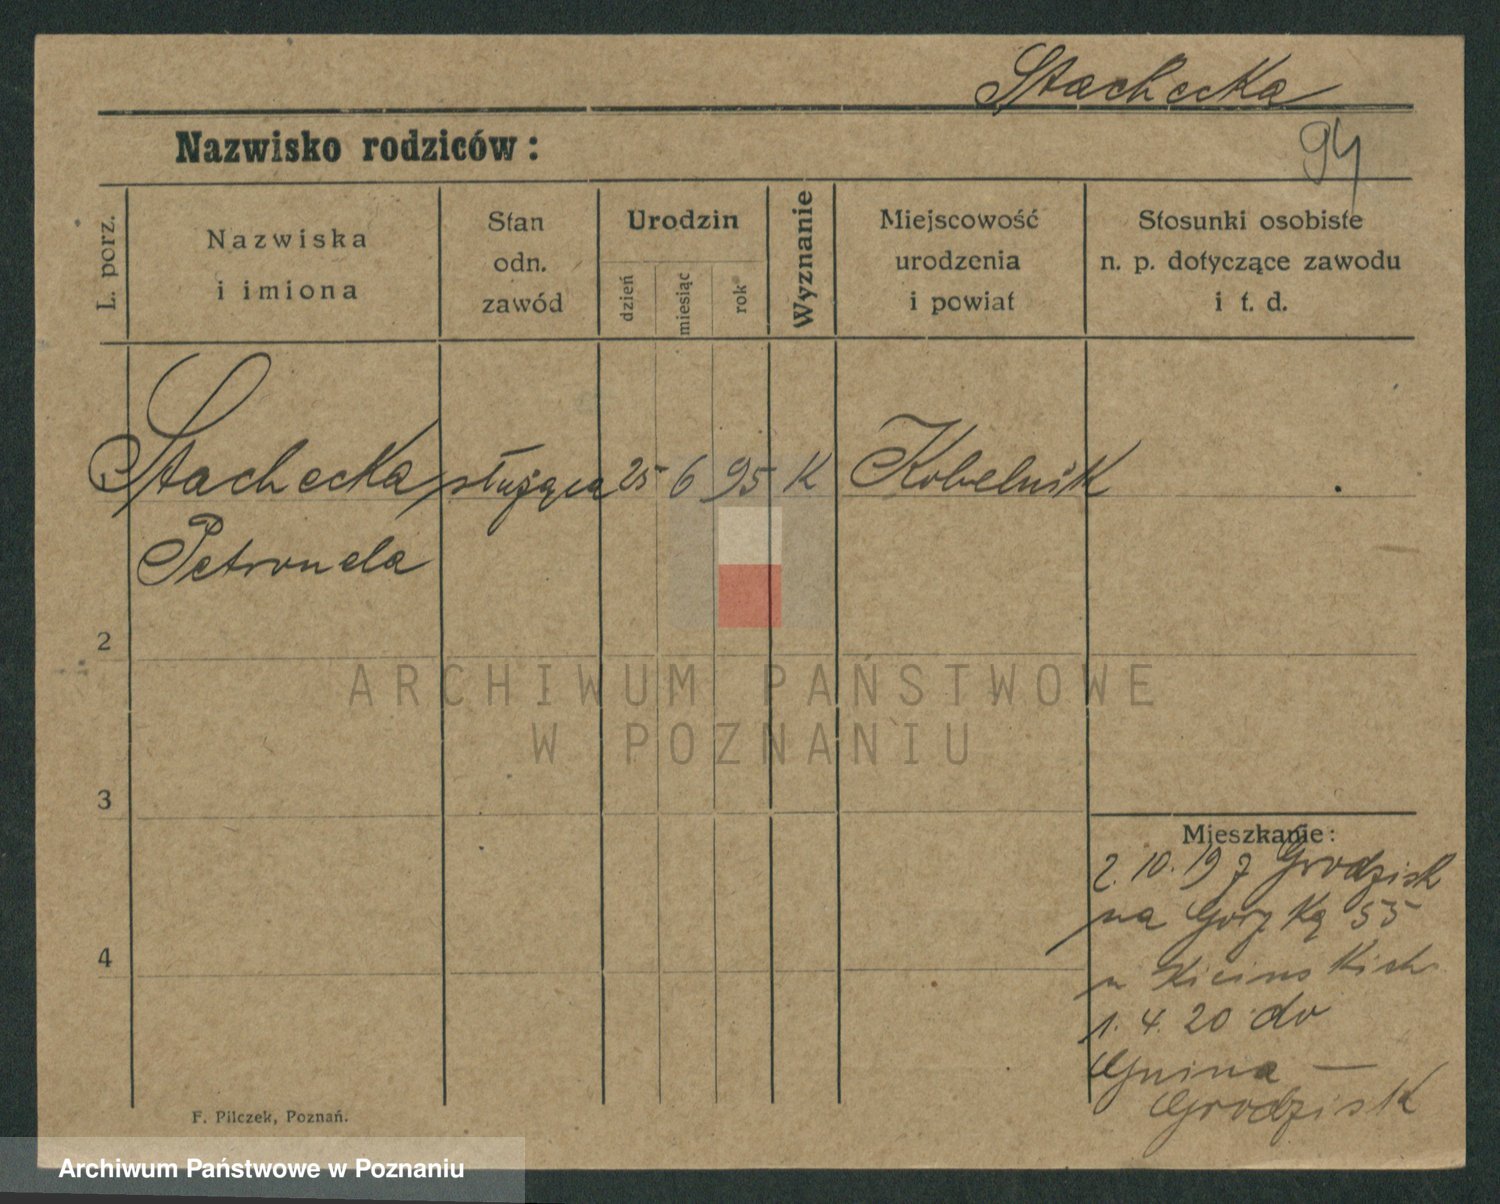 Stachecka
Nazwisko rodziców:
94
L. porz.
Nazwiska
i imiona
Stan
odn.
zawód
Urodzin
dzień
miesiąc
rok
Wyznanie
Miejscowość
urodzenia
i powiat
Stosunki osobiste
n. p. dotyczące zawodu
i t. d.
Stachecka służąca 25 6 95 K Kobelnik
Petronela
2
ARCHIWUM PAŃSTWOWE
W POZNANIU
3
Mieszkanie:
2. 10. 19 z Grodzisk
na Gorzką 55
4
u
1. 4. 20 do
Gnina —
Grodzisk
F. Pilczek, Poznań.
Archiwum Państwowe w Poznaniu